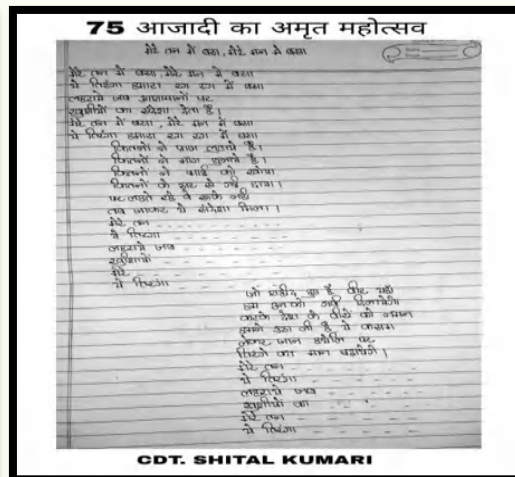 75 आजादी का अमृत महोत्सव
मेरे तन में बसा, मेरे मन में बसा
मेरे तन में बसा, मेरे मन में बसा
ये तिरंगा हमारा रग रग में बसा
लहराये जब आसमानों पर
खुशीयों का संदेशा देता है।
मेरे तन में बसा, मेरे मन में बसा
ये तिरंगा हमारा रग रग में बसा
कितनों ने प्राण लुटाये है।
कितनों ने
कितनों ने भाई को खोया
कितनों के
पर लड़ते रहे वे रुके नहीं
तब जाकर ये संदेशा मिला।
मेरे तन
ये तिरंगा
लहराये जब
खुशीयों
मेरे
ये तिरंगा
जो शहीद हुए हैं वीर यहाँ
हम उनको नहीं
करके देश के वीरों को नमन
हमने उठा ली है ये कसम
लेकर जान हथेलि पर
तिरंगे का मान बढ़ायेंगे।
मेरे तन
ये तिरंगा
लहराये जब
खुशीयों का
मेरे तन
ये तिरंगा
CDT. SHITAL KUMARI